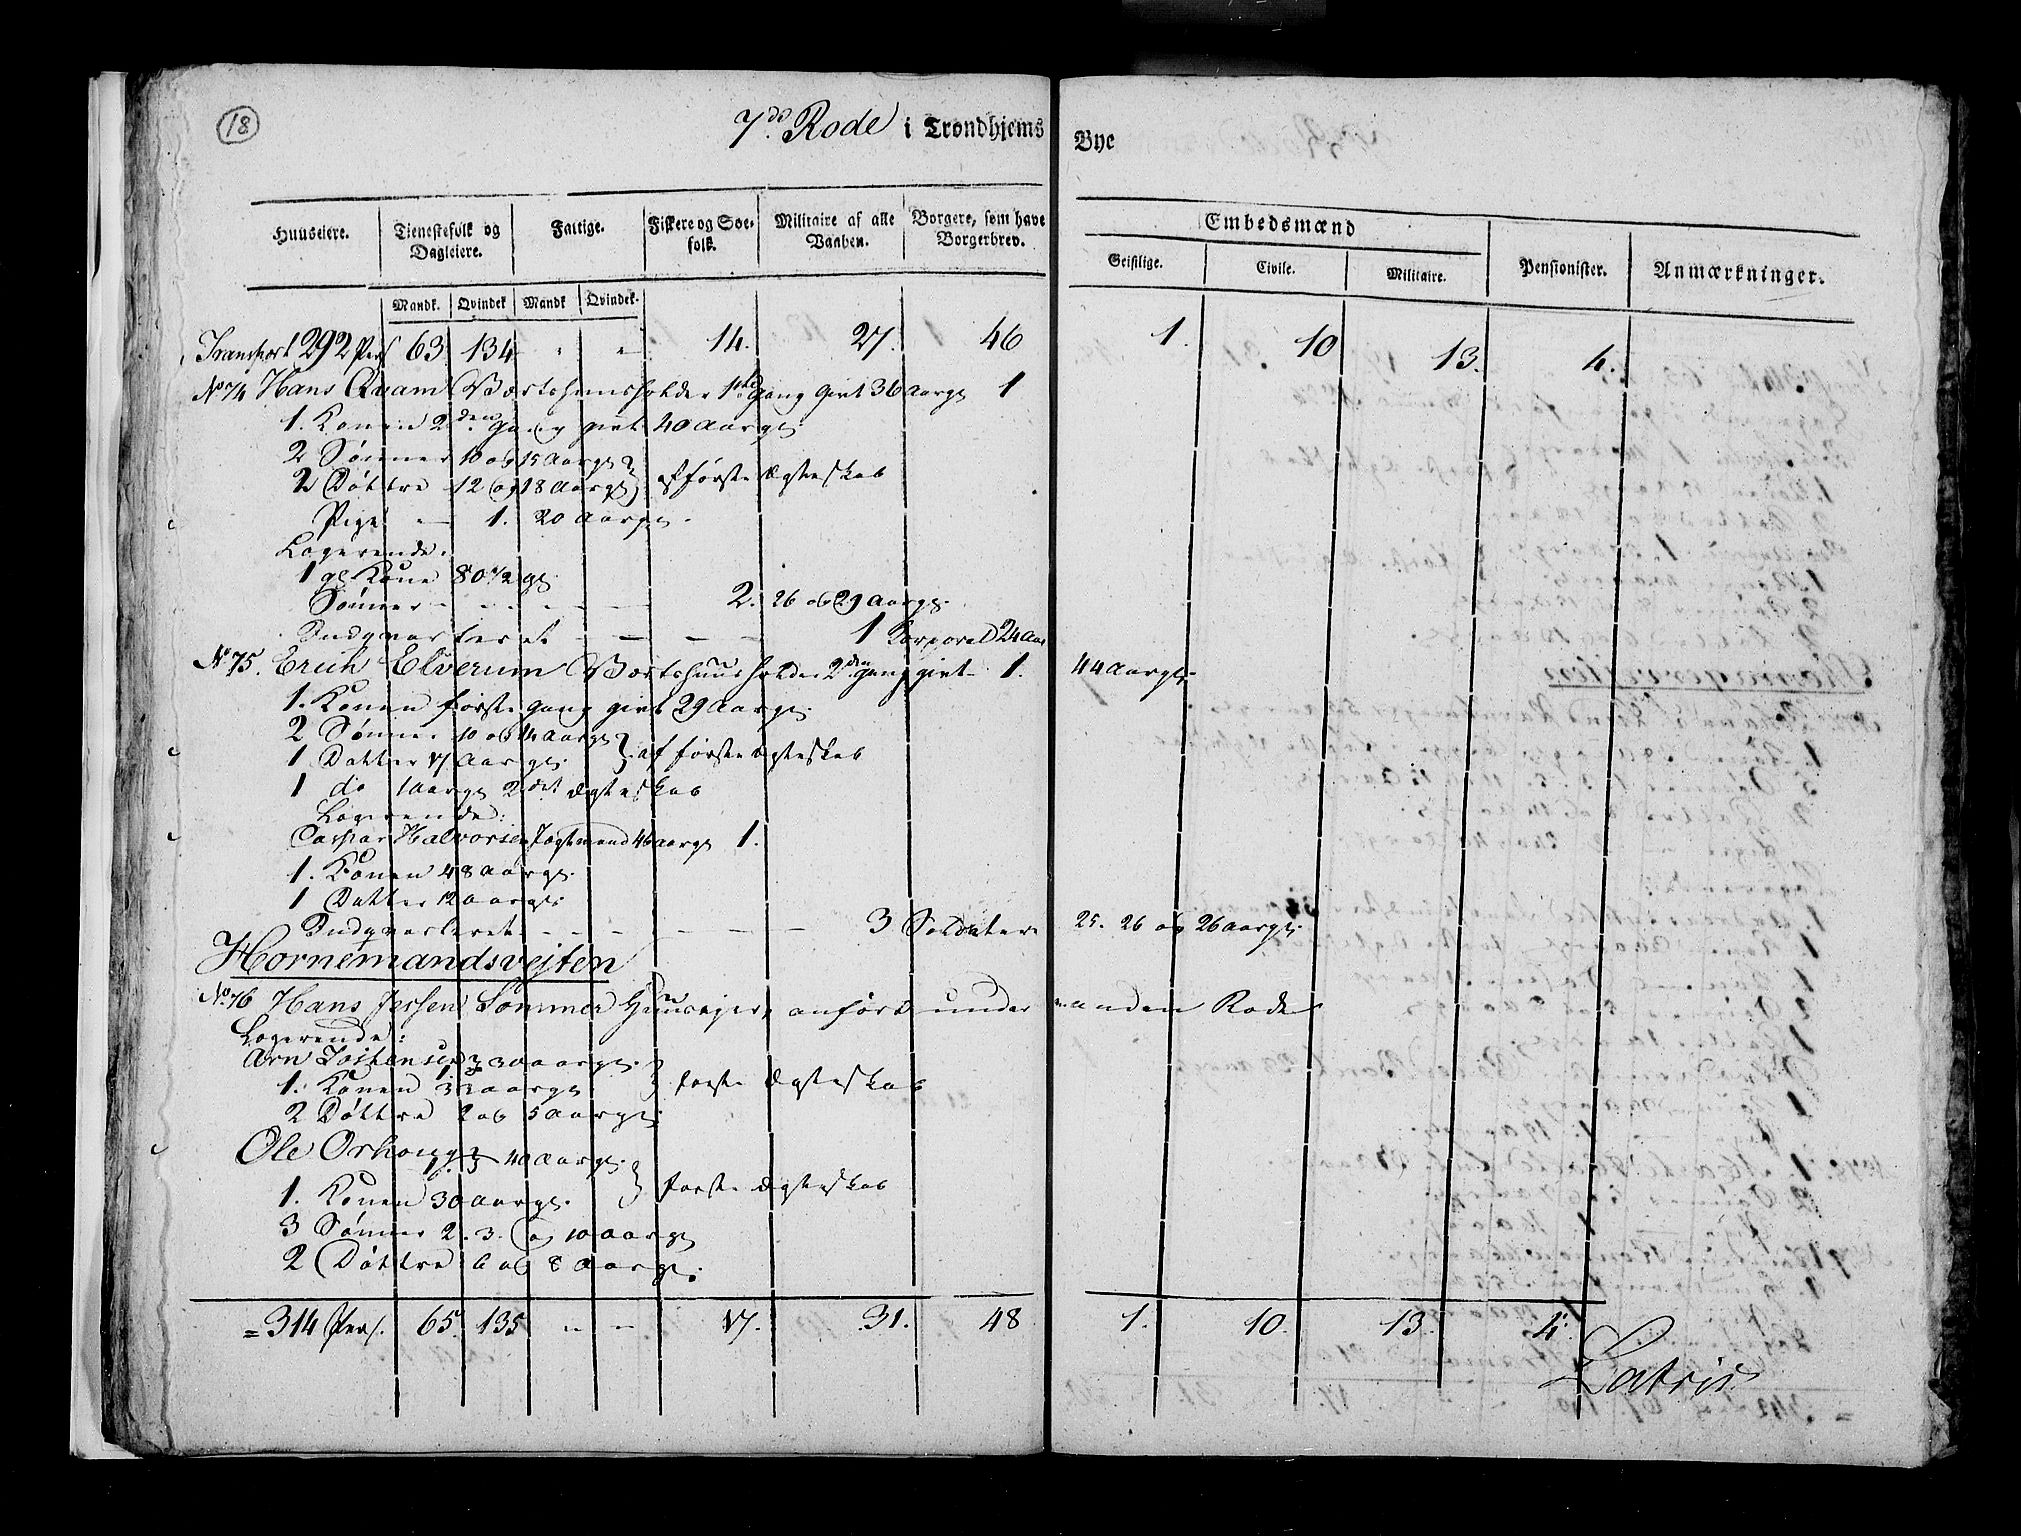 18
7de Rode i Trondhjems Bye
Huuseiere. Tienestefolk og Dagleiere. Fattige. Fiskere og Søefolk. Militaire af alle Vaaben. Borgere, som have Borgerbrev. Embedsmænd Pensionister. Anmærkninger.
Geistlige. Civile. Militaire.
Mandk. Qvindek Mandk Qvindek.
Transport 292 Pers 63 134 " " 14. 27. 46 1. 10 13. 4.
No 74 Hans Qvam Værtshuusholder 1ste gang givt 36 aarge 1
1. Konen 2den gang givt 40 aarge
2 Sønner 10 og 15 aarge
2 Døttre 12 og 18 aarge } af første Ægteskab
Pige — 1. 20 aarge.
Logerende.
1 gl. Kone 80 1/2 gl.
Sønner - - - - - 2. 26 og 29 aarge.
Indqvarteret - - - - 1 Korporal 24 aar
No 75. Erich Elverum Værtshuusholder 2den gang givt - 1. 44 aarge
1. Konen første gang givt 29 aarge.
2 Sønner 10 og 14 aarge
1 Datter 17 aarge. } af første Ægteskab
1 do 1 aarge 2det Ægteskab
Logerende:
Caspar Halvorsen Jagtemand 46 aarge 1.
1. Konen 48 aarge.
1 Datter 12 aarge
Indqvarteret - - - - - 3 Soldater 25. 26 og 26 aarge
Hornemandsvejten
No 76 Hans Jessen Sommer Huusejer, anført under anden Rode
Logerende:
Arn Jostensen 1. 30 aarge.
1. Konen 32 aarge } første Ægteskab
2 Døttre 2 og 5 aarge.
Ole Orkong 1. 40 aarge.
1. Konen 30 aarge. } første Ægteskab
3 Sønner 2. 3. og 10 aarge
2 Døttre 6 og 8 aarge.
= 314 Pers. 65. 135 " " 17. 31. 48 1. 10. 13. 4.